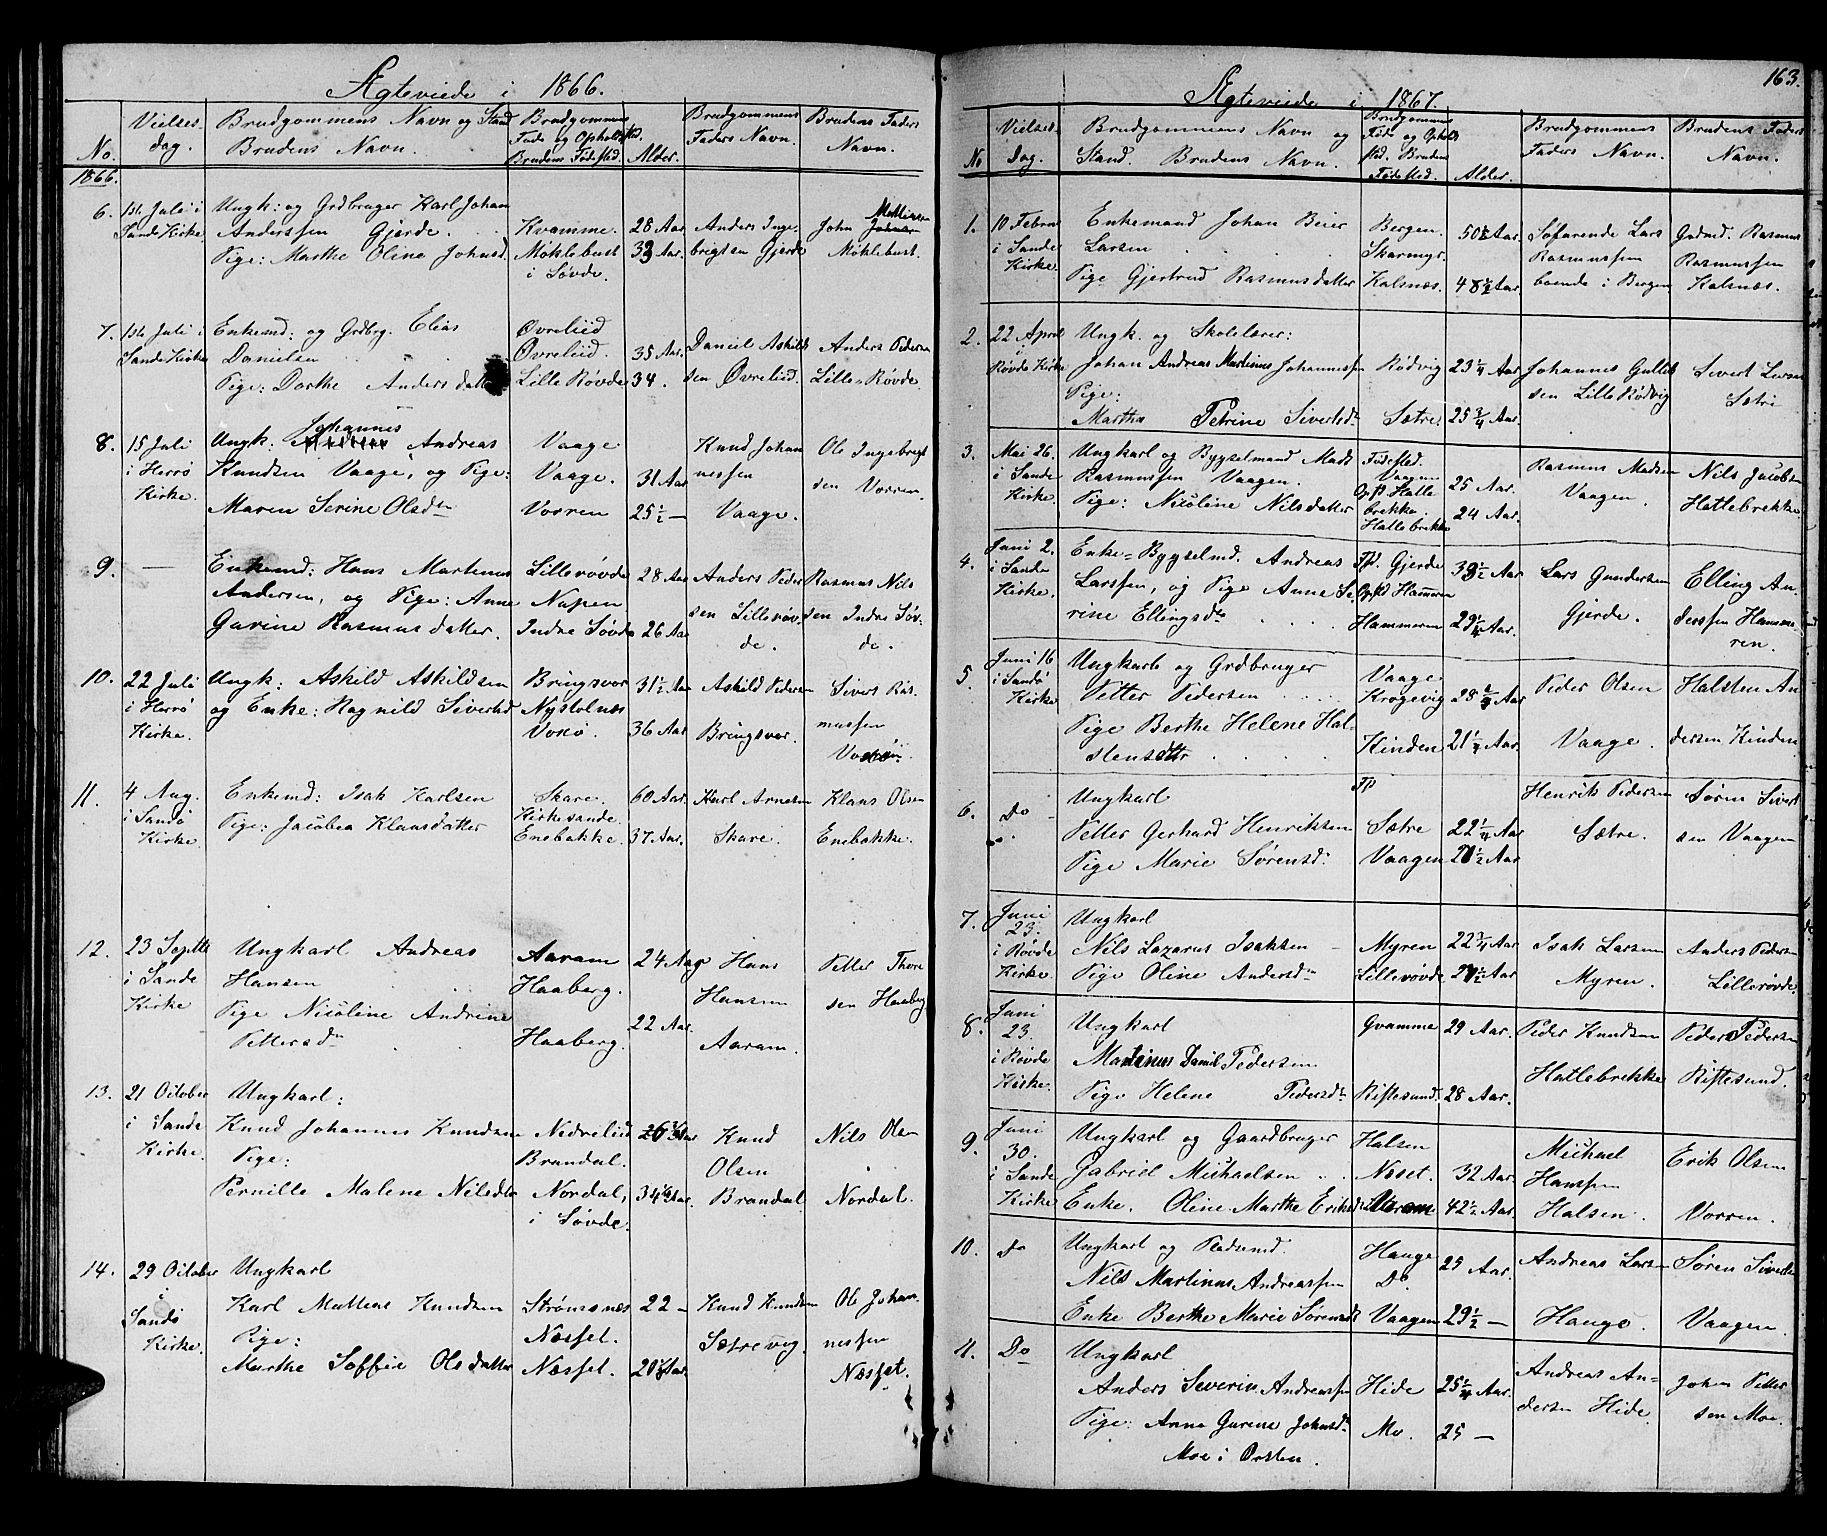 Ægteviede i 1866.
No.
Vielses-
dag.
Brudgommens Navn og Stand
Brudens Navn.
Brudgommens
Føde og Opholdssted.
Brudens Fødested.
Alder.
Brudgommens
Faders Navn.
Brudens Faders
Navn.
1866.
6. 1ste Juli i
Sande Kirke.
Ungk: og Grdbruger Karl Johan
Anderssen Gjerde.
Pige: Marthe Oline Johnsd.
Kvamme.
Møklebust
i Søvde.
28 Aar
33 Aar.
Anders Inge-
brigtsen Gjerde
John
Møklebust.
7. 1ste Juli i
Sande Kirke
Enkemd: og Grdbrg. Elias
Danielsen
Pige: Dorthe Andersdatter
Øvreliid
Øvreliid.
Lille Røvde
35 Aar.
34.
Daniel Askild-
sen Øvreliid.
Anders Pedersen
Lille-Røvde.
8. 15 Juli
i Herrø
Kirke.
Johannes
Ungk: Andreas
Knudsen Vaage, og Pige:
Maren Serine Olsdtr
Vaage
Vaage.
Vorren
31 Aar
25½ —
Knud Johan-
nessen
Vaage.
Ole Ingebrigt-
sen Vorren.
9. —
Enkemd: Hans Martinus
Andersen, og Pige: Anne
Gurine Rasmusdatter.
Lillerøvde
Napen
Indre Søvde
28 Aar
26 Aar
Anders Peder-
sen Lillerøv-
de.
Rasmus Nils-
sen Indre Søv-
de.
10. 22 Juli
i Herrø
Kirke.
Ungk: Askild Askildsen
og Enke: Ragnild Sivertsd
Bringsvor
Nystølnes
Voxø.
31½ Aar
36 Aar
Askild Pedersen
Bringsvor.
Sivert Ras-
mussen
11. 4 Aug.
i Sandø
Kirke.
Enkemd: Isak Karlsen
Pige: Jacobea Klausdatter
Skare.
Kirkesande.
Enebakke.
60 Aar.
37 Aar.
Karl Arnesen
Skare.
Klaus Olsen
Enebakke.
12. 23 Septbr
i Sande
Kirke
Ungkarl Andreas
Hansen
Pige Nicoline Andrine
Pettersdtr
Aaram
Haaberg.
Haaberg.
24 Aar
22 Aar
Hans
Hansen
Aaram.
Petter Thore-
sen Haaberg
13. 21 October
i Sande
Kirke.
Ungkarl:
Knud Johannes Knudsen
Pige:
Pernille Malene Nilsdtr
Nedreliid
Brandal.
Nordal,
i Søvde.
26½ Aar
34½ Aar.
Knud
Olsen
Brandal
Nils Olsen
Nordal.
14. 29 October
i
Sandø
Kirke.
Ungkarl
Karl Mathias Knudsen
Pige:
Marthe Soffie Olsdatter
Strømsnæs
Næsset.
Næsset.
22 —
20½ Aar.
Knud Knudsen
Sætrevig.
Ole Johan-
nessen
Næsset.
163.
Ægteviede i 1867.
No
Vielses-
dag.
Brudgommens Navn og
Stand. Brudens Navn.
Brudgommens
Føde og Opholds-
sted. Brudens
Fødested.
Alder.
Brudgommens
Faders Navn.
Brudens Faders
Navn.
1. 10 Febru
i Sande
Kirke.
Enkemand Johan Beier
Larsen
Pige Gjertrud Rasmusdatter
Bergen.
Skarmyr.
Kalsnæs.
50½ Aar.
48½ Aar.
Søfarende Lars
Rasmussen
boende i Bergen
Gadmd. Rasmus
Rasmussen
Kalsnæs.
2. 22 April
i
Røvde Kirke
Ungk. og Skolelærer:
Johan Andreas Martinus Johannessen
Pige:
Martha Petrine Sivertsd
Rødvig
Sætre
23¼ Aar
25¾ Aar.
Johannes Gullik-
sen Lille Rødvig
Sivert Larsen
Sætre
3. Mai 26.
i Sande
Kirke.
Ungkarl og Bygselmand Mads
Rasmussen Vaagen.
Pige: Nicoline Nilsdatter
Fødested.
Vaagen
Opst Hatle-
brekke.
Hatlebrekke
25 Aar.
24 Aar.
Rasmus Madsen
Vaagen
Nils Jacobsen
Hatlebrekke.
4. Juni 2.
i Sande
Kirke.
Enke-Bygselmd. Andreas
Larssen, og Pige Anne Se-
rine Ellingsdtr
Fst. Gjerde
Opst Hammeren
Hammeren
33½ Aar
29¼ Aar.
Lars Gundersen
Gjerde.
Elling An-
derssen Hamme-
ren.
5. Juni 16
i Sandø
Kirke
Ungkarl og Grdbruger
Petter Pedersen
Pige Berthe Helene Hal-
stensdtr
Vaage
Krogevig
Kinden
21¼ Aar.
Peder Olsen
Vaage.
Halsten An-
dersen Kinden
6. Do
Ungkarl
Petter Gerhard Henriksen
Pige Marie Sørensd:
Sætre
Vaagen
22¼ Aar
Henrik Pedersen
Sætre.
Søren Sivert-
sen Vaagen
7. Juni
23.
i Røvde
Kirke.
Ungkarl
Nils Lazarus Isaksen
Pige Oline Andersdtr
Myren
Lillerøvde
22¾ Aar
Isak Larsen
Myren.
Anders Pedersen
Lillerøvde.
8. Juni
23.
i Røvde
Kirke.
Ungkarl
Martinus Daniel Pedersen
Pige Helene Pedersdtr
Gvamme
Riftesund.
29 Aar.
28 Aar.
Peder Knudsen
Hatlebrekke
Peder Pedersen
Riftesund.
9. Juni
30.
i Sande
Kirke
Ungkarl og Gaardbruger
Gabriel Michaelsen
Enke. Oline Marthe Eriksd
Halsen
Næset.
32 Aar
42½ Aar
Michael
Hanssen
Halsen.
Erik Olsen
Vorren.
10. Do
Ungkarl og Pladsmd.
Nils Martinus Andreassen
Enke Berthe Marie Sørensdt
Hauge
Do.
Vaagen
25 Aar.
29½ —
Andreas Larsen
Hauge.
Søren Sivertsen
Vaagen.
11. Do
Ungkarl
Anders Severin Andreassen
Pige: Anne Gurine Johnsdtr
Moe i Ørsten.
Hide
Mo.
25¼ Aar.
25 —
Andreas An-
dersen Hide.
John Petter-
sen Moe.